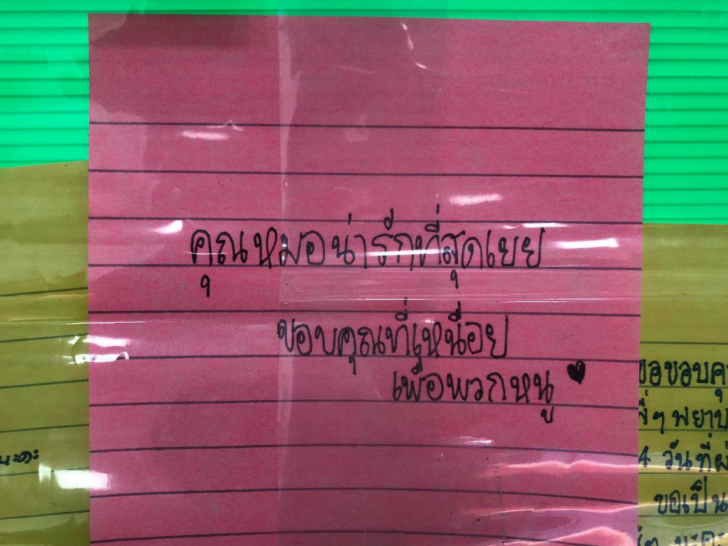 คุณหมอน่ารักที่สุดเยย
ขอบคุณที่เหนื่อย
เพื่อพวกหนู ♥
นะคะ
ขอขอบคุ
พี่ๆ พยาบ
4 วันที่ผ
ขอเป็น
นะคะ